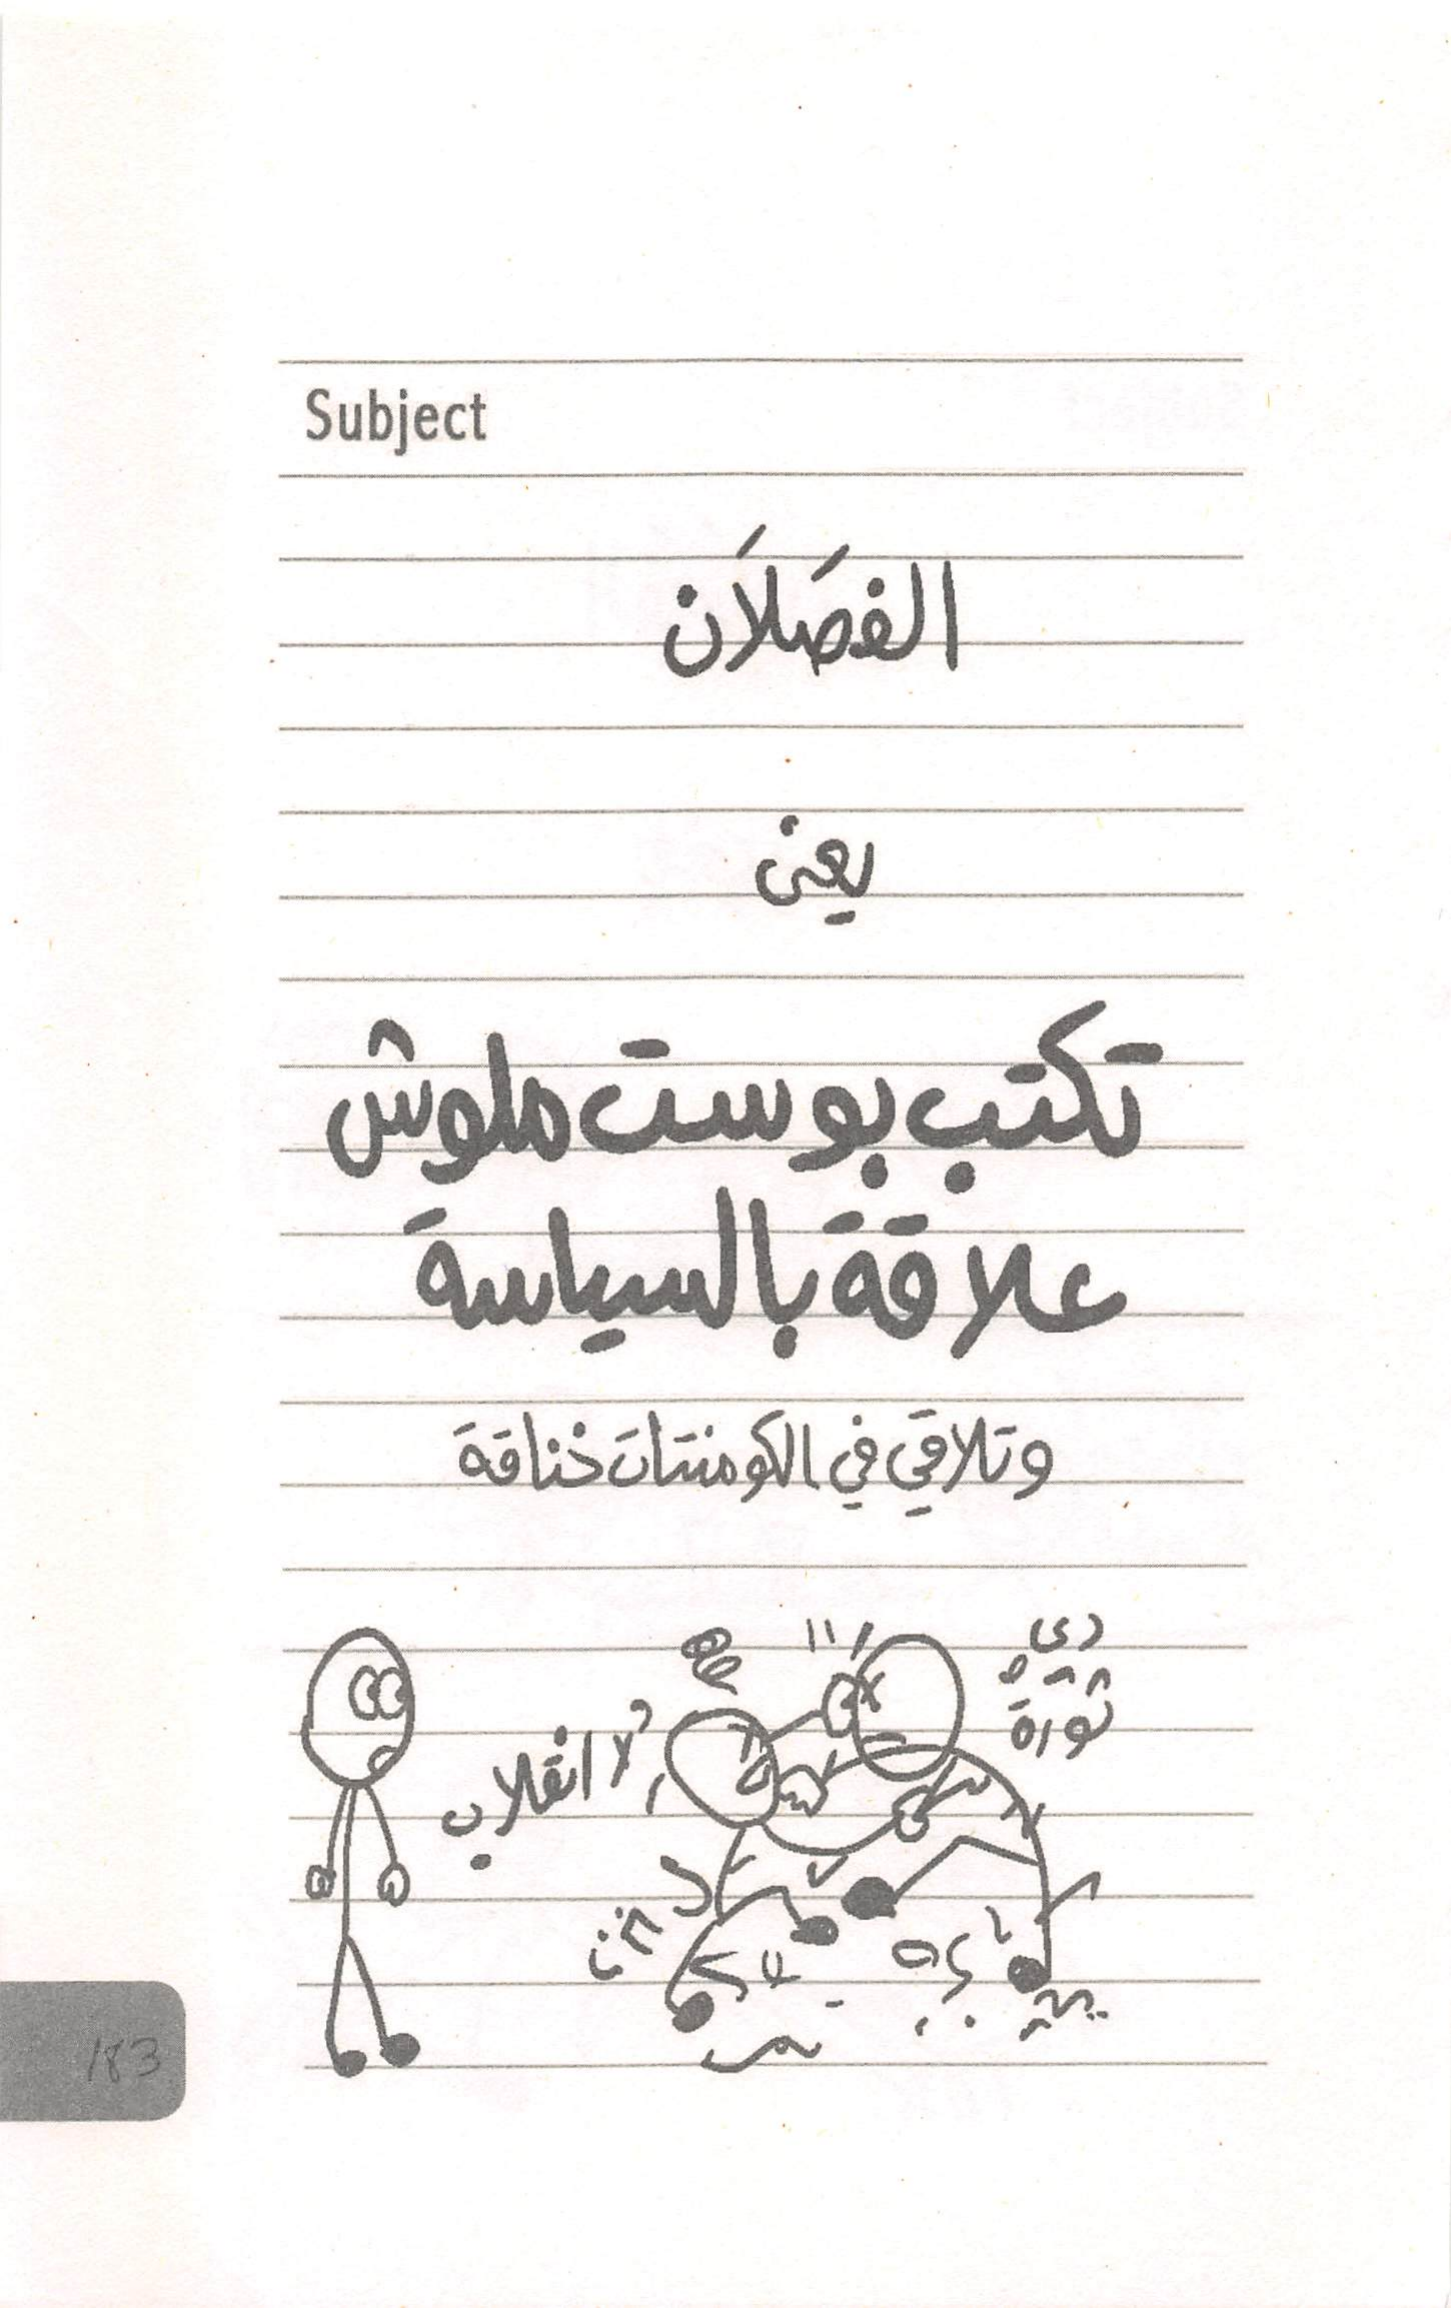 Subject
الفصَلاَن
يعنى
تكتب بوست ملوش
علاقة بالسياسة
وتلاقي في الكومنتات خناقة
دي
ثورة
لا انقلاب
183